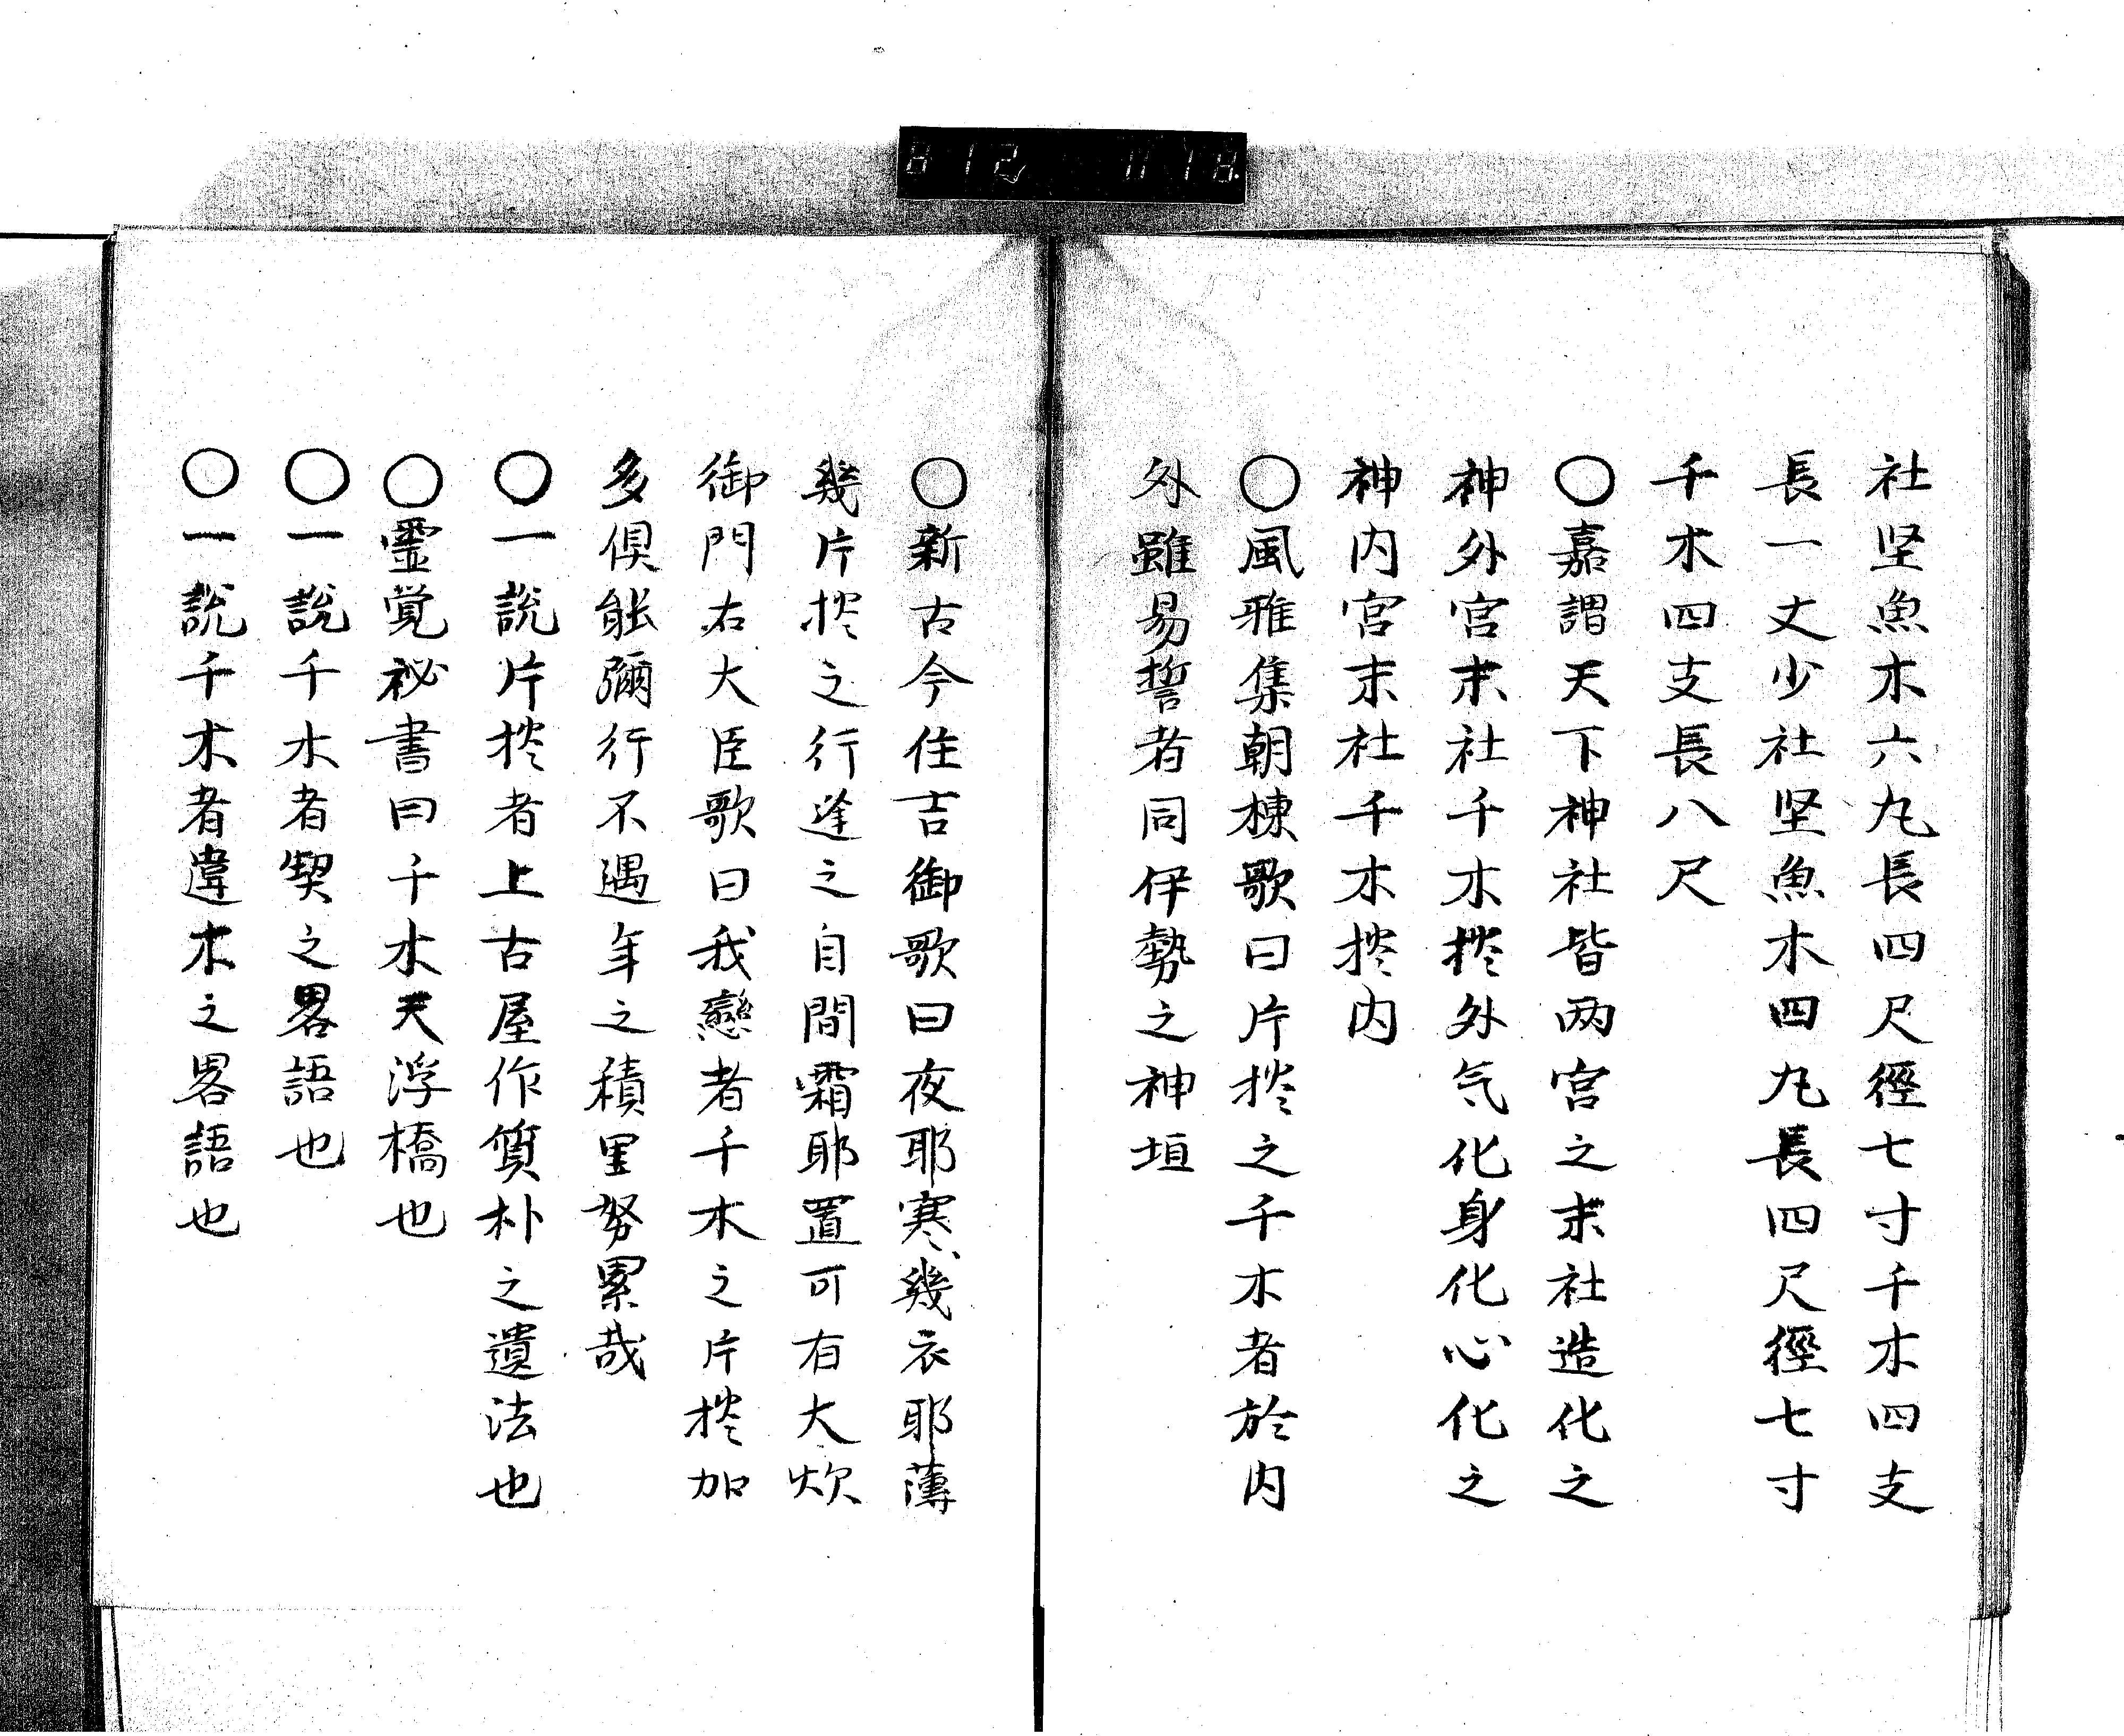 社坚魚木六丸長四尺徑七寸千木四支
長一丈少社坚魚木四丸長四尺徑七寸
千木四支長八尺
○嘉謂天下神社皆两宮之末社造化之
神外宮末社千木搓外气化身化心化之
神内宮末社千木搓内
○風雅集朝棟歌曰片搓之千木者於内
外雖易誓者同伊勢之神垣
○新古今住吉御歌曰夜耶寒幾衣耶薄
幾片搓之行逢之自間霜耶置可右大炊
御門右大臣歌曰我戀者千木之片搓加
多俱能彌行不遇年之積里努累哉
○一說片搓者上古屋作質朴之遺法也
○霊覚祕書曰千木天浮橋也
○一說千木者契之畧語也
○一說千木者違木之畧語也